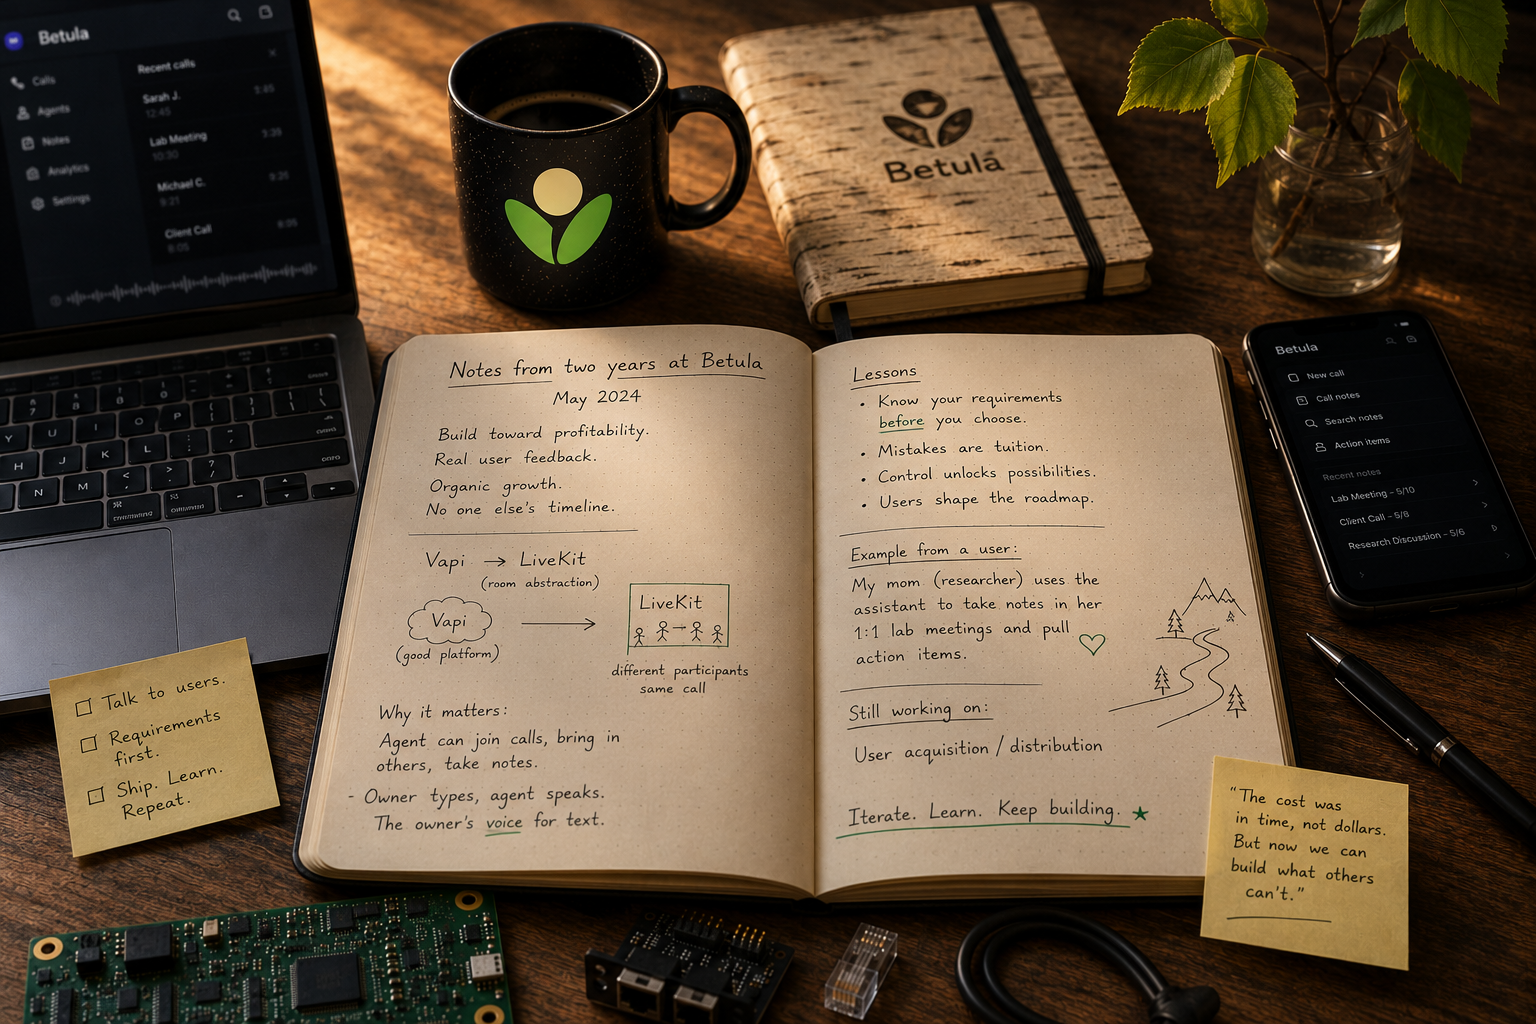 Betula
Calls
Agents
Notes
Analytics
Settings
Recent calls
Sarah J.
12:45
5:45
Lab Meeting
10:30
Michael C.
9:21
Client Call
8:05
Betula
Notes from two years at Betula
May 2024
Build toward profitability.
Real user feedback.
Organic growth.
No one else's timeline.
Vapi → LiveKit
(room abstraction)
Vapi
(good platform)
LiveKit
different participants
same call
Why it matters:
Agent can join calls, bring in
others, take notes.
- Owner types, agent speaks.
The owner's voice for text.
Lessons
• Know your requirements
before you choose.
• Mistakes are tuition.
• Control unlocks possibilities.
• Users shape the roadmap.
Example from a user:
My mom (researcher) uses the
assistant to take notes in her
1:1 lab meetings and pull
action items.
Still working on:
User acquisition / distribution
Iterate. Learn. Keep building.
Betula
New call
Call notes
Search notes
Action items
Recent notes
Lab Meeting - 5/10
Client Call - 5/8
Research Discussion - 5/6
Talk to users.
Requirements
first.
Ship. Learn.
Repeat.
"The cost was
in time, not dollars.
But now we can
build what others
can't."